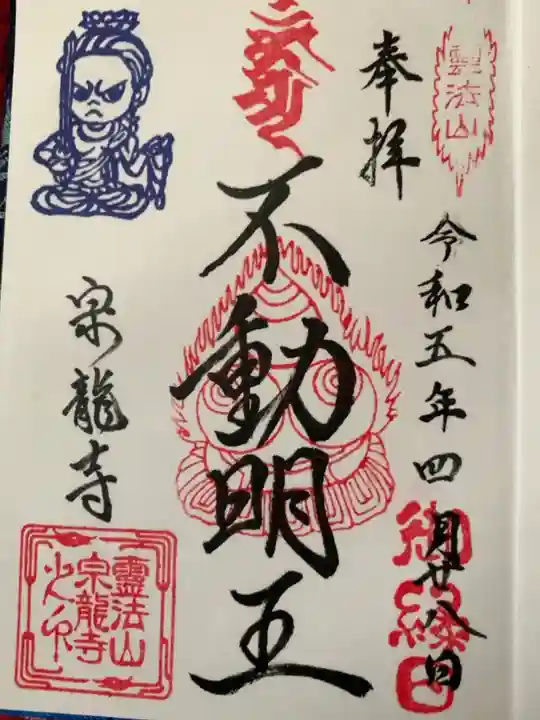 靈法山
奉拝
令和五年四月廿八日
御縁日
不動明王
宗龍寺
靈法山
宗龍寺
之印